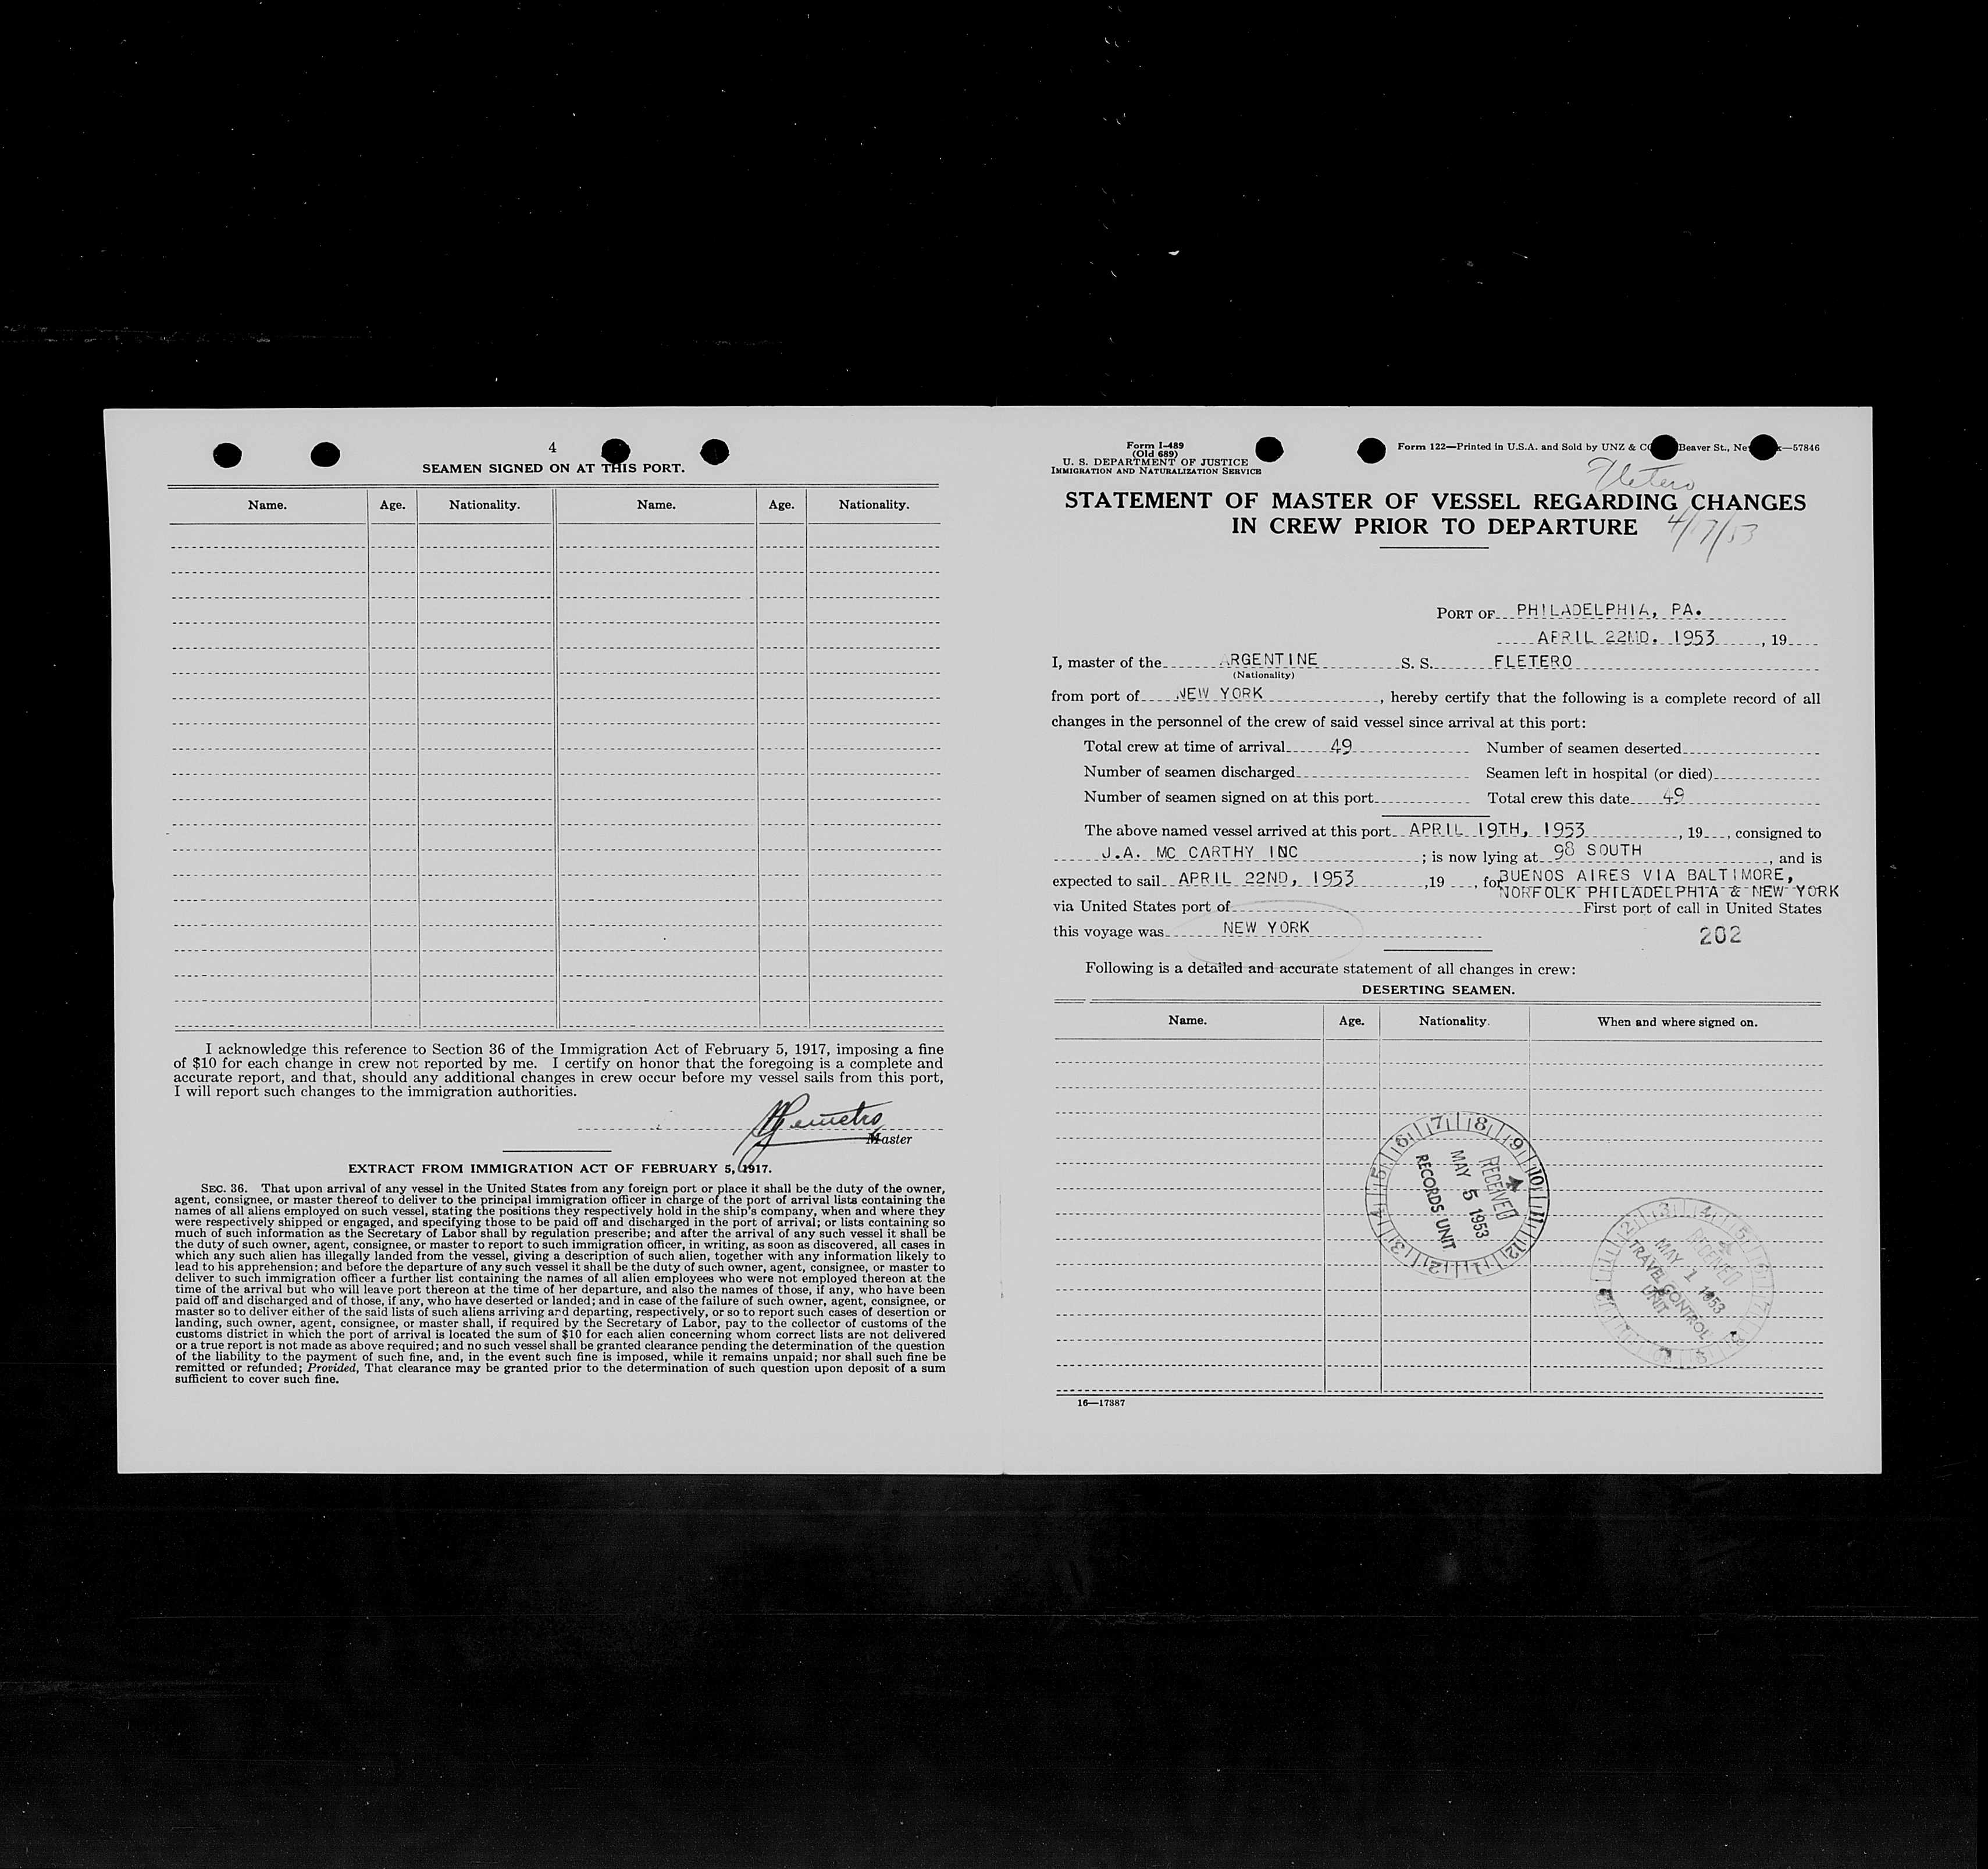 4
SEAMEN SIGNED ON AT THIS PORT.
Name. Age. Nationality. Name. Age. Nationality.
I acknowledge this reference to Section 36 of the Immigration Act of February 5, 1917, imposing a fine
of $10 for each change in crew not reported by me. I certify on honor that the foregoing is a complete and
accurate report, and that, should any additional changes in crew occur before my vessel sails from this port,
I will report such changes to the immigration authorities.
Master
EXTRACT FROM IMMIGRATION ACT OF FEBRUARY 5, 1917.
SEC. 36. That upon arrival of any vessel in the United States from any foreign port or place it shall be the duty of the owner,
agent, consignee, or master thereof to deliver to the principal immigration officer in charge of the port of arrival lists containing the
names of all aliens employed on such vessel, stating the positions they respectively hold in the ship's company, when and where they
were respectively shipped or engaged, and specifying those to be paid off and discharged in the port of arrival; or lists containing so
much of such information as the Secretary of Labor shall by regulation prescribe; and after the arrival of any such vessel it shall be
the duty of such owner, agent, consignee, or master to report to such immigration officer, in writing, as soon as discovered, all cases in
which any such alien has illegally landed from the vessel, giving a description of such alien, together with any information likely to
lead to his apprehension; and before the departure of any such vessel it shall be the duty of such owner, agent, consignee, or master to
deliver to such immigration officer a further list containing the names of all alien employees who were not employed thereon at the
time of the arrival but who will leave port thereon at the time of her departure, and also the names of those, if any, who have been
paid off and discharged and of those, if any, who have deserted or landed; and in case of the failure of such owner, agent, consignee, or
master so to deliver either of the said lists of such aliens arriving and departing, respectively, or so to report such cases of desertion or
landing, such owner, agent, consignee, or master shall, if required by the Secretary of Labor, pay to the collector of customs of the
customs district in which the port of arrival is located the sum of $10 for each alien concerning whom correct lists are not delivered
or a true report is not made as above required; and no such vessel shall be granted clearance pending the determination of the question
of the liability to the payment of such fine, and, in the event such fine is imposed, while it remains unpaid; nor shall such fine be
remitted or refunded; Provided, That clearance may be granted prior to the determination of such question upon deposit of a sum
sufficient to cover such fine.
Form I-489
(Old 689)
U. S. DEPARTMENT OF JUSTICE
IMMIGRATION AND NATURALIZATION SERVICE
Form 122—Printed in U.S.A. and Sold by UNZ & C Beaver St., Ne —57846
Fletero
STATEMENT OF MASTER OF VESSEL REGARDING CHANGES
IN CREW PRIOR TO DEPARTURE
4/17/53
PORT OF PHILADELPHIA, PA.
APRIL 22ND. 1953, 19
I, master of the ARGENTINE S. S. FLETERO
(Nationality)
from port of NEW YORK, hereby certify that the following is a complete record of all
changes in the personnel of the crew of said vessel since arrival at this port:
Total crew at time of arrival 49 Number of seamen deserted
Number of seamen discharged Seamen left in hospital (or died)
Number of seamen signed on at this port Total crew this date 49
The above named vessel arrived at this port APRIL 19TH, 1953, 19, consigned to
J.A. MC CARTHY INC; is now lying at 98 SOUTH, and is
expected to sail APRIL 22ND, 1953, 19, for BUENOS AIRES VIA BALTIMORE,
NORFOLK PHILADELPHIA & NEW YORK
via United States port of First port of call in United States
this voyage was NEW YORK
202
Following is a detailed and accurate statement of all changes in crew:
DESERTING SEAMEN.
Name. Age. Nationality. When and where signed on.
1 2 3 4 5 6 7 8 9 10 11 12
RECEIVED
MAY 5 1953
RECORDS UNIT
RECEIVED
MAY 1 1953
TRAVEL CONTROL
UNIT
16—17387